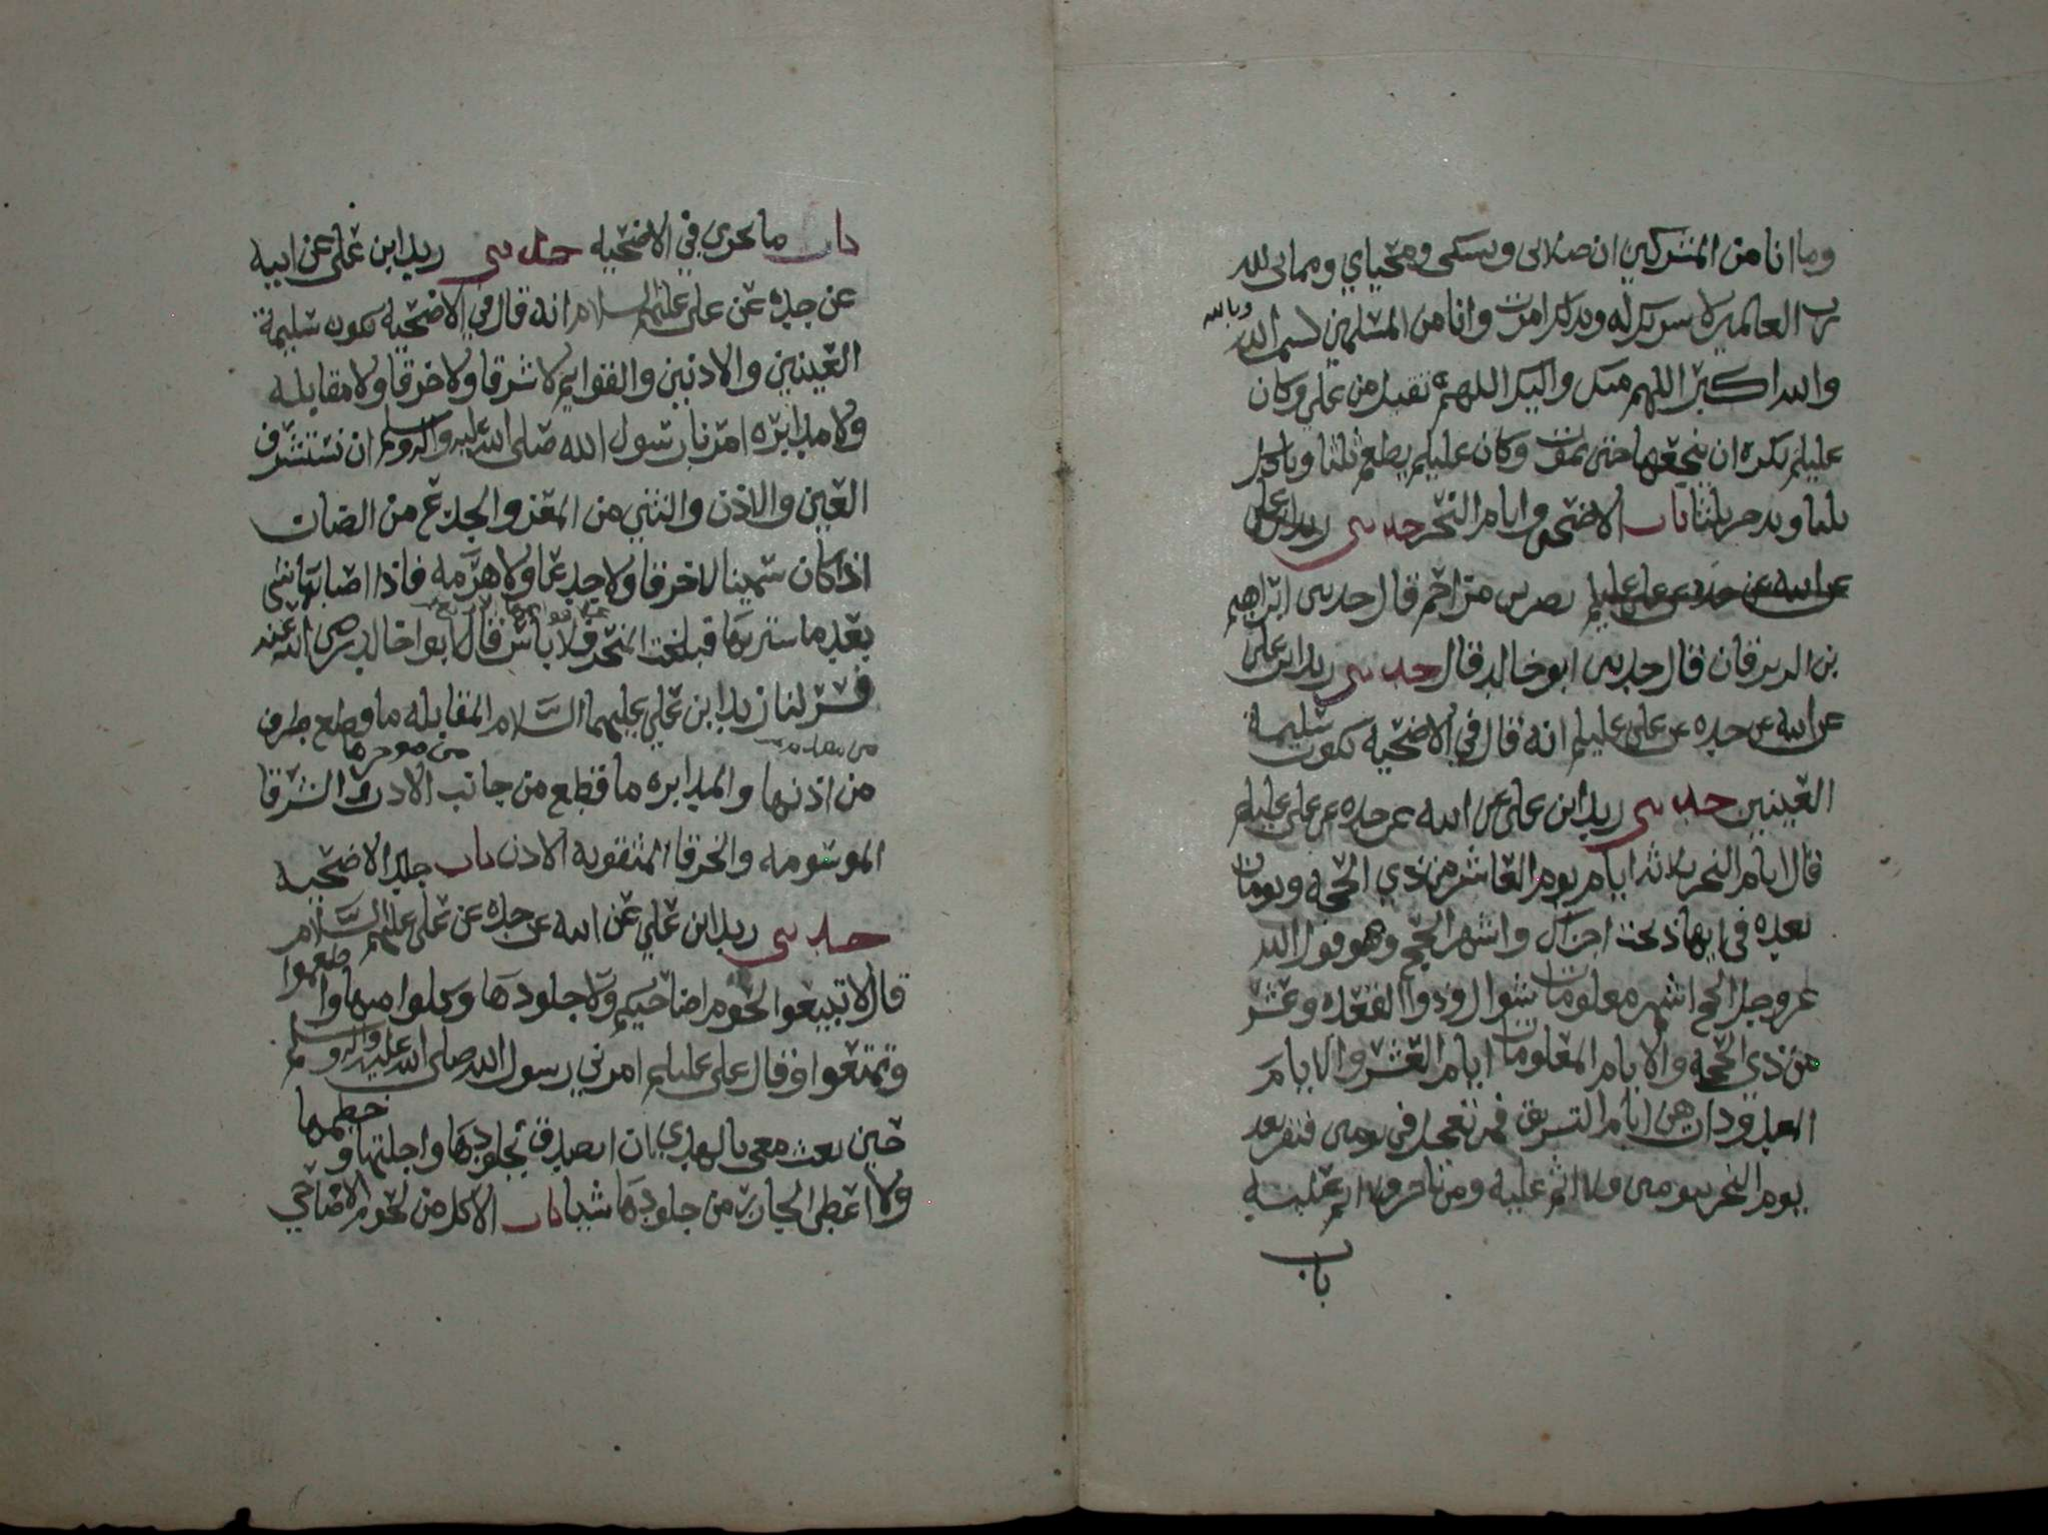 وما انا من المشركين ان صلاتى ونسكى ومحياي ومماتى لله
رب العالمين لا شريك له وبذلك امرت وانا من المسلمين بسم الله وبالله
والله اكبر اللهم منك واليك اللهم تقبل من على وكان
عليلم يكره ان ينخعها حتى تموت وكان عليلم يطعم ثلثا وياكل
ثلثا ويدخر ثلثا باب الاضحى وايام النحر حدثنى زيد ابن على
عن ابيه عن جده عن على عليلم نصر بن مزاحم قال حدثنى ابراهيم
بن الزبرقان قال حدثنى ابو خالد قال حدثنى زيد ابن على
عن ابيه عن جده عن على عليلم انه قال في الاضحيه تكون سليمة
العينين حدثنى زيد ابن على عن ابيه عن جده عن على عليلم
قال ايام النحر ثلاثه ايام يوم العاشر من ذي الحجه ويومان
بعده في ايها ذبحت اجزاك واشهر الحج وهو قول الله
عز وجل الحج اشهر معلومات شوال وذوا القعده وعشر
من ذي الحجه والايام المعلومات ايام العشر والايام
المعدودات هي ايام التشريق فمن تعجل في يومين فنفر بعد
يوم النحر بيومين فلا اثم عليه ومن تاخر فلا اثم عليه
باب
باب ما يجزي في الاضحيه حدثنى زيد ابن على عن ابيه
عن جده عن على عليلم السلام انه قال في الاضحيه تكون سليمة
العينين والاذنين والقوايم لا شرقا ولا خرقا ولا مقابله
ولا مدابره امرنا رسول الله صلى الله عليه واله وسلم ان نستشرف
العين والاذن والثني من المعز والجذع من الضان
اذا كان سمينا لا خرقا ولا جدعا ولا هرمه فاذا اصابها شى
بعد ما شتريتها فبلغت المنحر فلا باس قال ابوا خالد رضى الله عنه
فسر لنا زيد ابن علي عليهما السلام المقابله ما قطع طرف
من مقدمـ
من اذنها والمدابره ما قطع من جانب الاذن والشرقا
من موخرها
الموسومه والخرقا المثقوبه الاذن باب جلد الاضحيه
حدثنى زيد ابن علي عن ابيه عن جده عن على عليهم السلام
قال لا تبيعوا لحوم اضاحيكم ولا جلودها وكلوا منها واطعموا
وتمتعوا وقال على عليلم امرني رسول الله صلى الله عليه واله وسلم
حين بعث معى بالهدي ان اتصدق بجلودها واجلتها وخطمها
ولا اعطى الجازر من جلودها شيا باب الاكل من لحوم الاضاحي